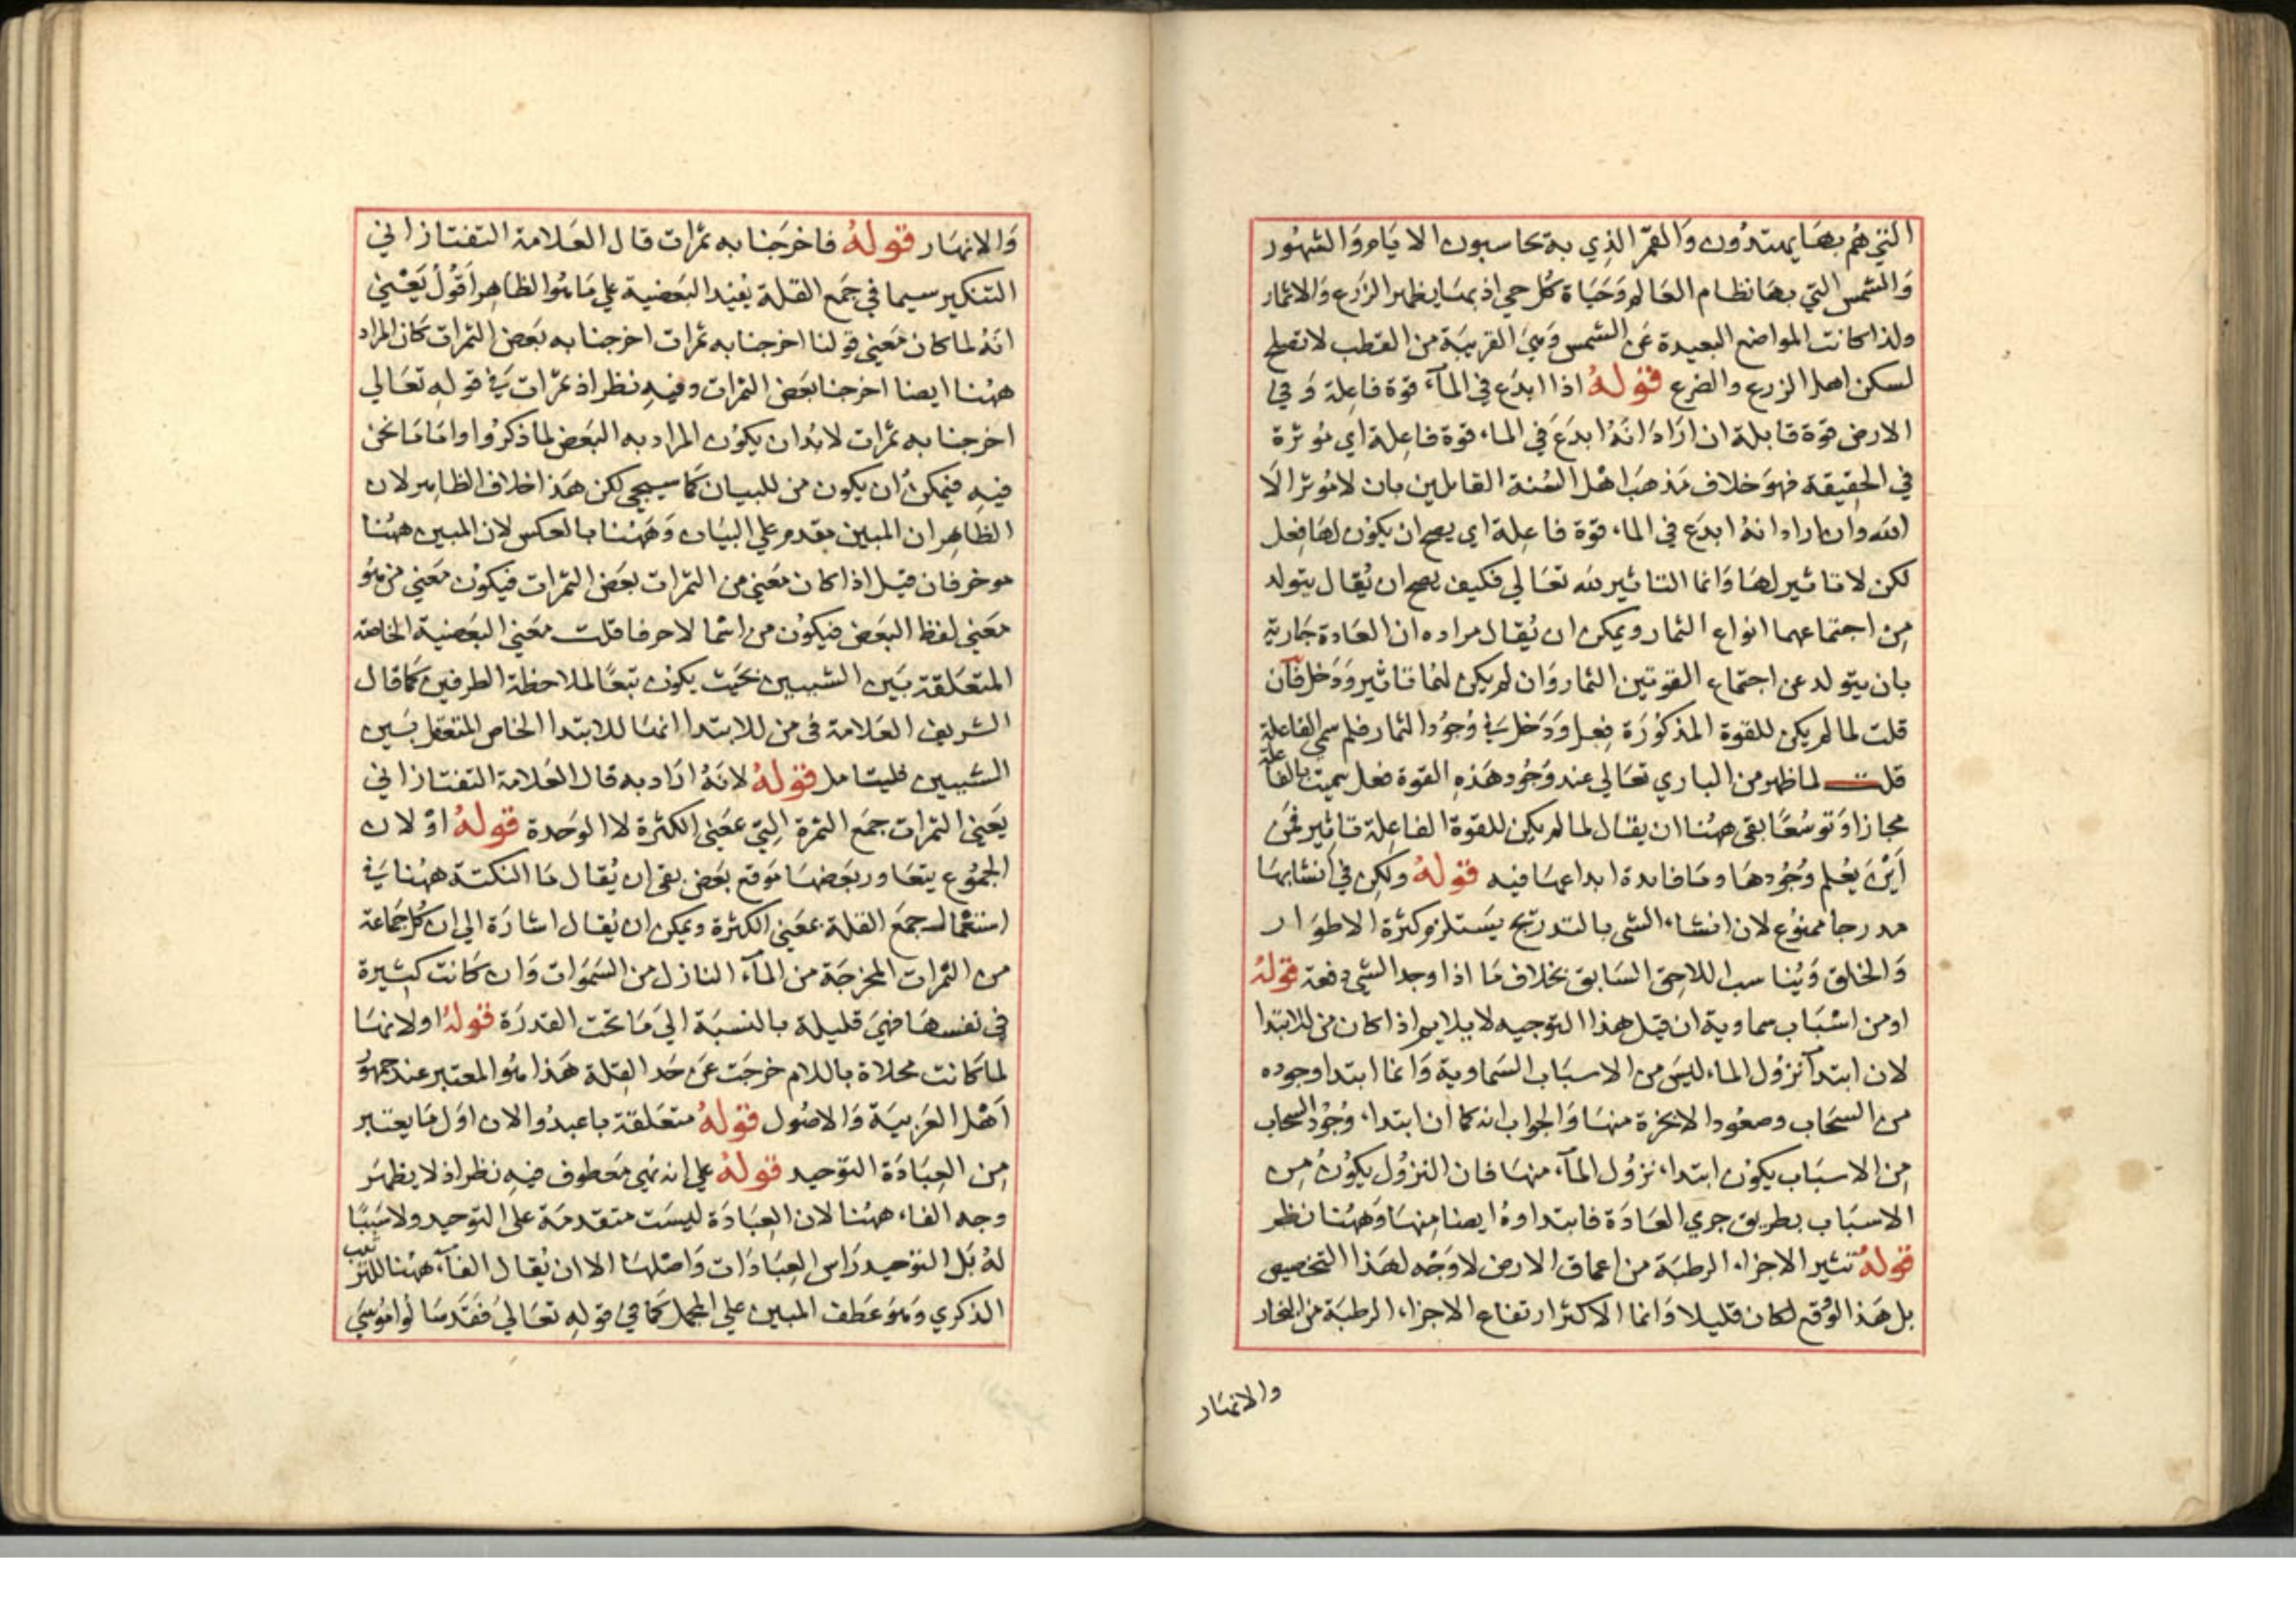 التي هُم بهَا يهتدُون وَالقمَر الذِي به يحاسبون الايَام وَالشهُور
وَالشمس التي بهَا نظام العَالم وَحَيَاة كُل حي اذ بهَا يظهر الزَرع وَالاثمار
ولذا كانت المواضع البعيدة عَن الشمس وَهيَ القريبَة من القطب لا تصلح
لسكن اهل الزرع والضرع قولهُ اذا ابدَع في المآء قوة فاعِلة وَ في
الارض قوة قابلة ان ارَاد انهُ ابدَعَ في الماء قوة فاعِلة اي مُوثرة
في الحقِيقة فهوَ خلاف مَذهَب اهْل السُنة القايلين بان لا مُوثر الَا
الله وان اراد انهُ ابدَع في الماء قوة فاعِلة اي يصح ان يكوُن لهَا فِعل
لكن لا تاثير لهَا وَانما التاثير لله تعَالي فكيف يصح ان يُقال يتولد
مِن اجتماعهما انواع الثمار ويمكن ان يُقال مراده ان العَادة جَارية
بان يتولد عن اجتماع القوتين الثمار وَان لم يكن لهُا تاثير وَدَخل فَان
قلت لما لم يكن للقوة المذكوُرَة فِعل وَدَخل في وُجوُد الثمار فلم سمي الفاعلة
قلت لما ظهر من الباري تعَالي عند وَجُود هَذهِ القوة فعل سميت بالفاعلة
مجازا وَ توسُعًا بقى ههُنا ان يقال لما لم يكن للقوة الفاعِلة تاثِير فمَن
اَيْنَ يَعُلم وُجُودهَا ومَا فايدة ابداعهَا فيه قولهُ ولكِن في اَنشايهَا
مدرجا ممنوُع لان انشاء الشي بالتدريج يسَتلزم كثرة الاطوَار
وَالخلق وَيُناسب اللاحِق السَابق بخلاف مَا اذا وجد الشي دفعة قولهُ
اومن اسْبَاب سماوية ان قيل هذا التوجيه لا يلايم اذا كان من للابتدا
لان ابتدآ نزوُل الماء ليسَ من الاسبَاب السَماوية وَانما ابتدا وجوده
من السحَاب وصعُود الابخرة منهَا وَالجواب انه كما ان ابتداء وُجُود السحاب
مِن الاسبَاب يكوُن ابتداء نزوُل المآء منهَا فان النزوُل يكوُن مِن
الاسبَاب بطريق جري العَادَة فابتداوهُ ايضا مِنهَا وَههُنا نظر
قولهُ تثير الاجزاء الرطبَة من اعماق الارض لا وَجْه لهَذا التخصيص
بل هَذا لوُقع لكان قليلا وَانما الاكثر ارتفاع الاجزاء الرطبَة من البخار
والانهَار
وَالانهَار قولهُ فاخرَجنا به ثمرات قال العَلامة التفتازاني
التنكير سيما في جَمع القلة يفيْد البَعضية علي مَا هُوا لظاهِر اَقُولُ يَعْني
انهُ لما كان مَعني قولنا اخرجنا به ثمرات اخرجنا به بَعض الثمرات كان المراد
ههُنا ايضا اخرجنا بَعض الثمرات وفيهِ نظر اذ ثمرات في قولهِ تعَالي
اخرجنا به ثمرات لابدُ ان يكوُن المراد به البَعض لما ذكرُوا وامَا مَا نحن
فيهِ فيمكنُ ان يكون من للبيان كمَا سيجي لكن هَذا خلاف الظاهِر لان
الظاهِر ان المبين يقدم علي البيَان وَههْنا بالعكس لان المبين ههُنا
موخر فان قيل اذا كان مَعني من الثمرات بعَض الثمرات فيكوُن مَعني من هُو
مَعني لفظ البَعض فيكوُن من اسمًا لا حرفا قلت مَعني البعَضية الخاصة
المتعَلقة بَين الشيين بحَيث يكوُن تبعًا لملاحظة الطرفين كمَا قال
الشريف العَلامة في من للابتدا انمَا للابتدا الخاص المتعقل بَين
الشيين فليتامل قولهُ لانهُ ارَاد به قال العَلامة التفتازاني
يعَني الثمرات جمَع الثمرة التِي بمَعني الكثرة لا الوَحدة قولهُ اوْ لان
الجمُوع يتعَاور بَعضهَا مَوقع بَعض بقى ان يُقال مَا النكتة ههُنا في
استعْمال جمَع القلة بمعَني الكثرة ويمكن ان يُقال اشارَة الي ان كُل جَماعة
من الثمرات المخرجَة من المآء النازل من السَموَات وَان كَانت كثِيرة
في نفسهَا فهيَ قليلة بالنسبَة الي مَا تحَت القدرَة قولهُ او لانهَا
لما كانت محلاة باللام خرجَت عَن حَد القِلة هَذا هُو المعتبر عند جمهُور
اَهْل العَربيَة وَالاصوُل قولهُ متعَلقة باعبدُوا لان اوَل مَا يعتبر
مِن العِبَادَة التوَحيد قولهُ علي انه نهي مَعطوف فيهِ نظر اذ لا يظهَر
وجه الفاء ههُنا لان العِبَادَة ليسَت متقدمَة على التوحيد ولا سَببًا
لهُ بَل التوَحيد رَاس العِبَادَات وَاصْلهَا الا ان يُقال الفآء ههُنا للترتيب
الذكري وَهوَ عَطف المبين علي المجمل كمَا في قولهِ تعَالي فقَد سَالُوا مُوُسَي